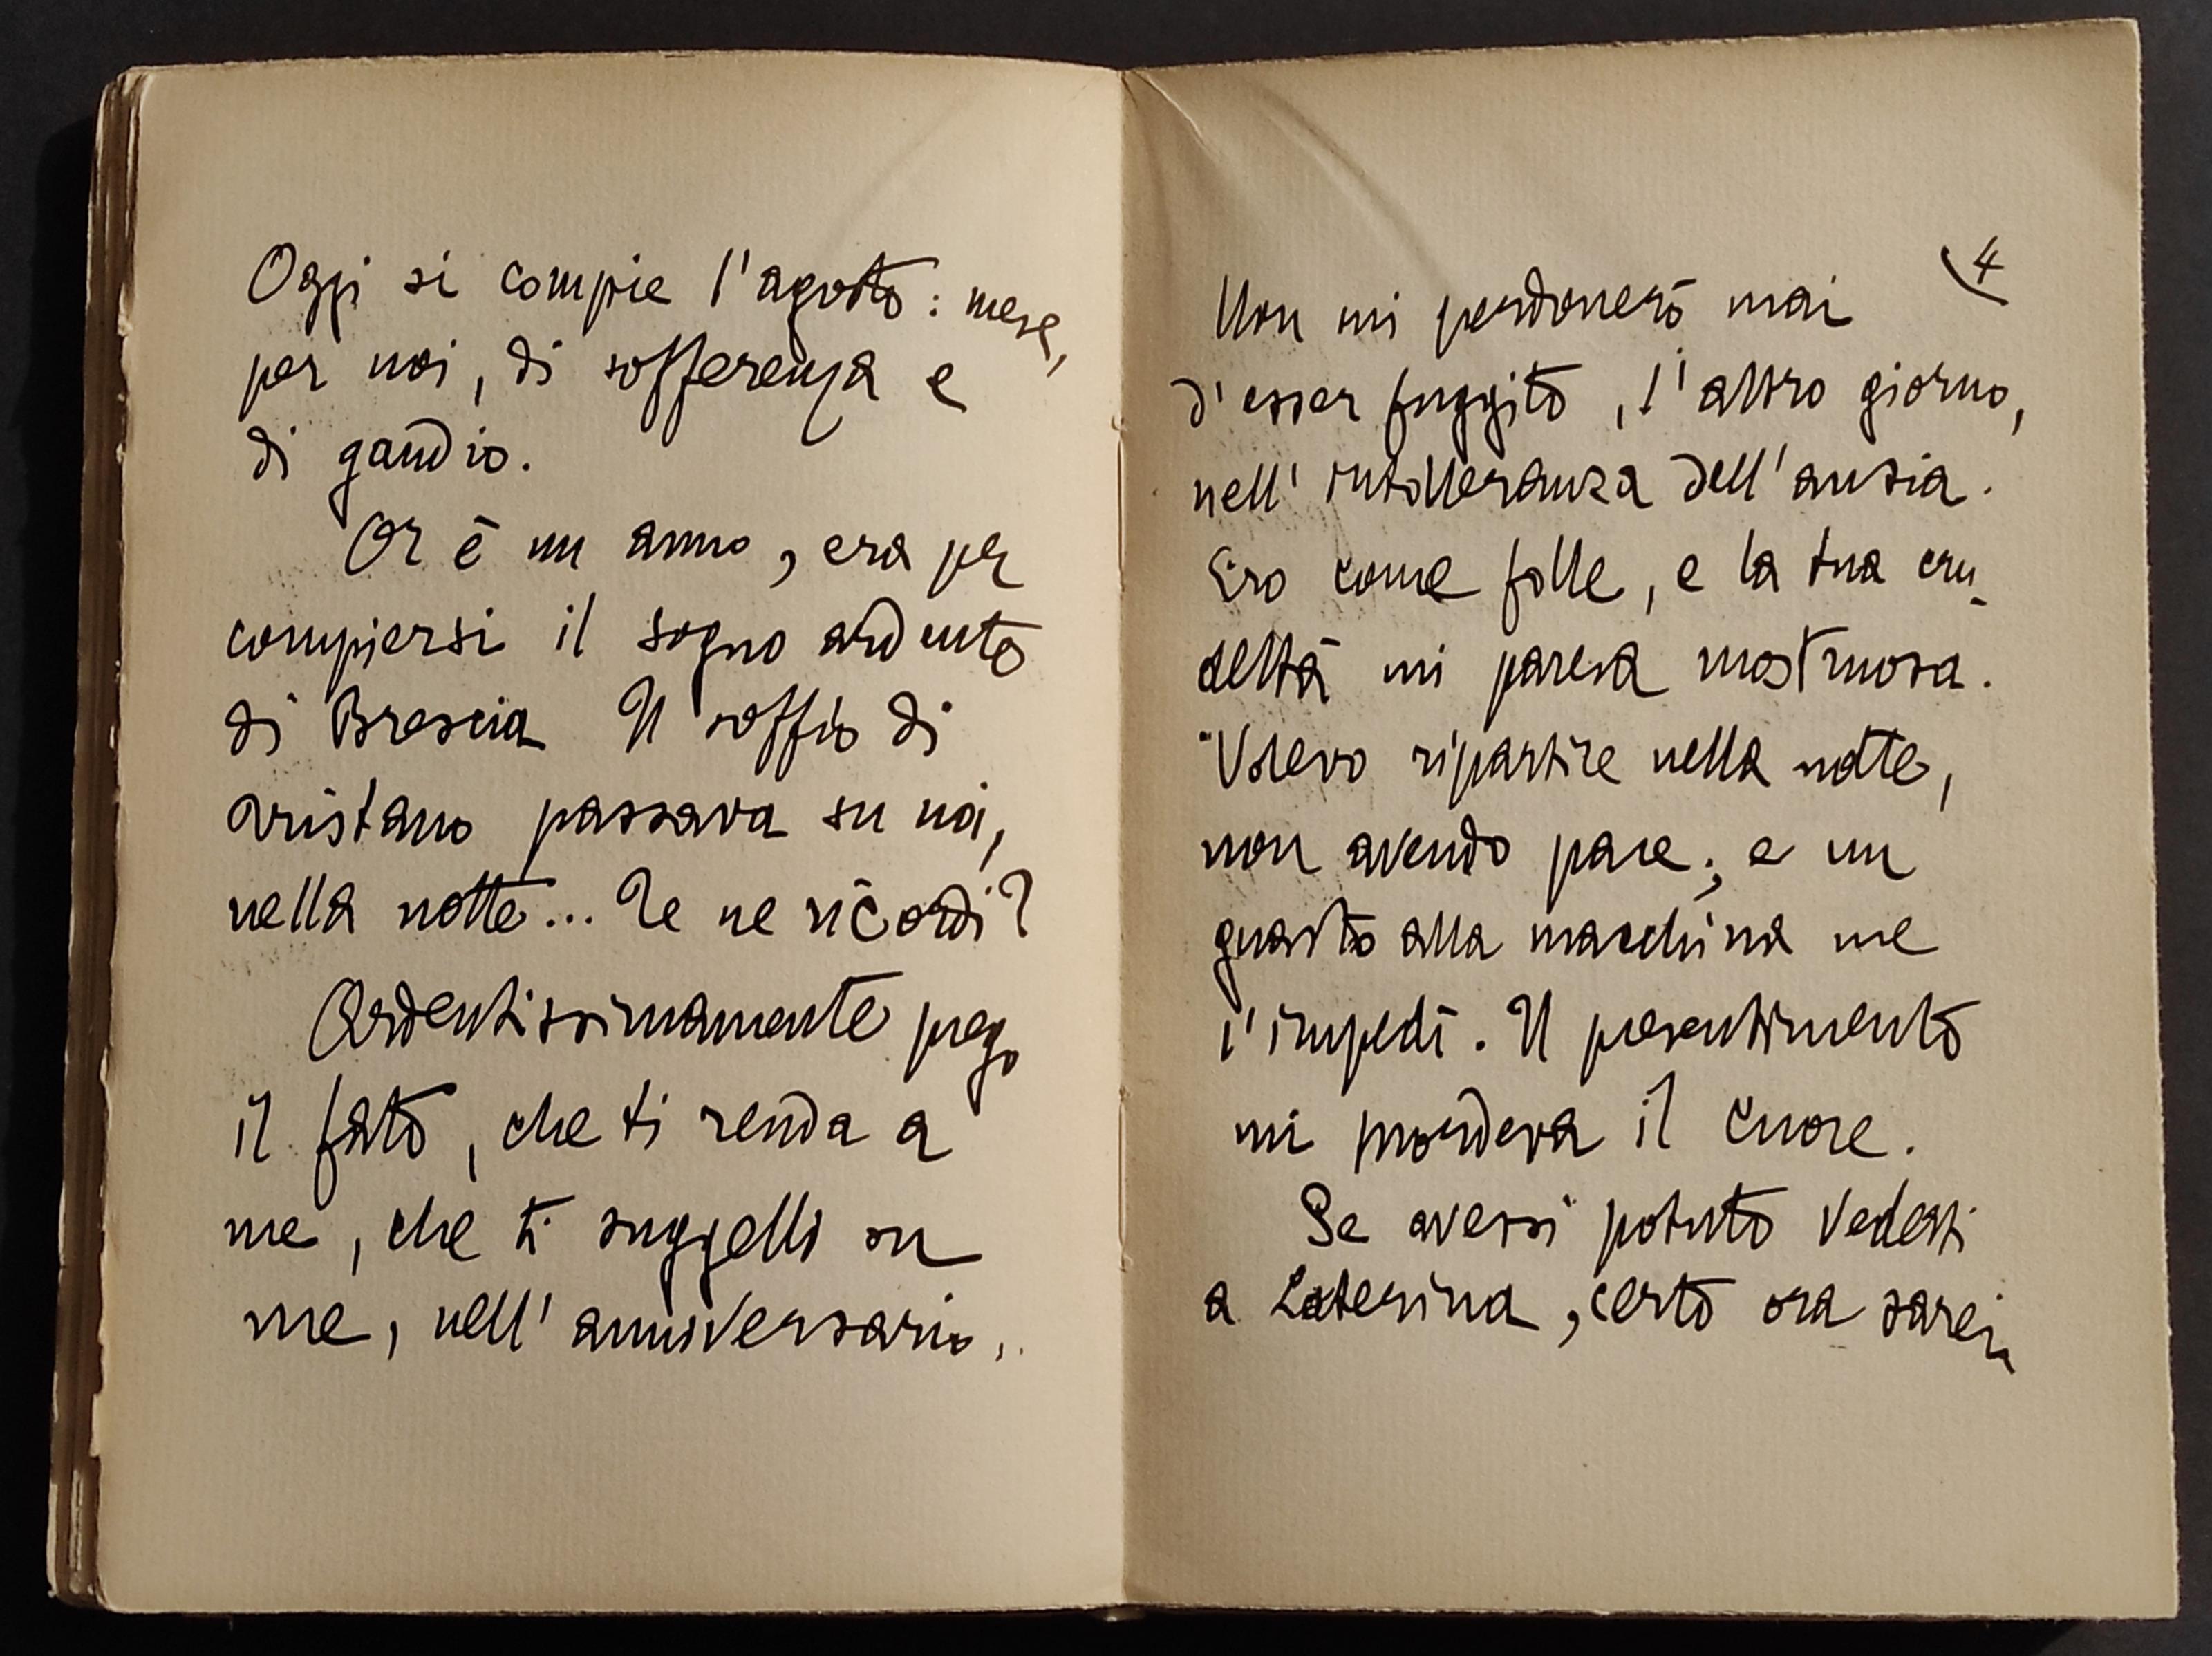 Oggi si compie l'agosto: mese,
per noi, di sofferenza e
di gaudio.
Or è un anno, era per
compiersi il sogno ardente
di Brescia Il soffio di
Tristano passava su noi,
nella notte... Te ne ricordi?
Ardentissimamente prego
il fato, che ti renda a
me, che ti suggelli su
me, nell'anniversario.
4
Non mi perdonerò mai
d'esser fuggito, l'altro giorno,
nell'intolleranza dell'ansia.
Ero come folle, e la tua cru-
deltà mi pareva mostruosa.
Volevo ripartire nella notte,
non avendo pace; e un
guasto alla macchina me
l'impedì. Il presentimento
mi mordeva il cuore.
Se avessi potuto vederti
a Laterina, certo ora sarei